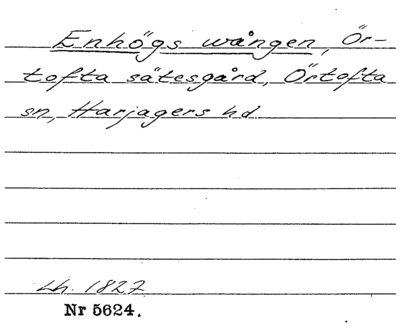 Enhögs wången, Ör-
tofta sätesgård, Örtofta
sn, Harjagers hd
Lh. 1827
Nr 5624.